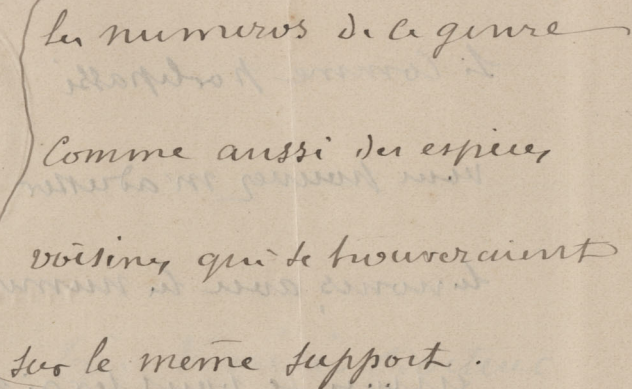 les numeros de ce genre
Comme aussi des espèces
voisines qui se trouveraient
sur le même support.